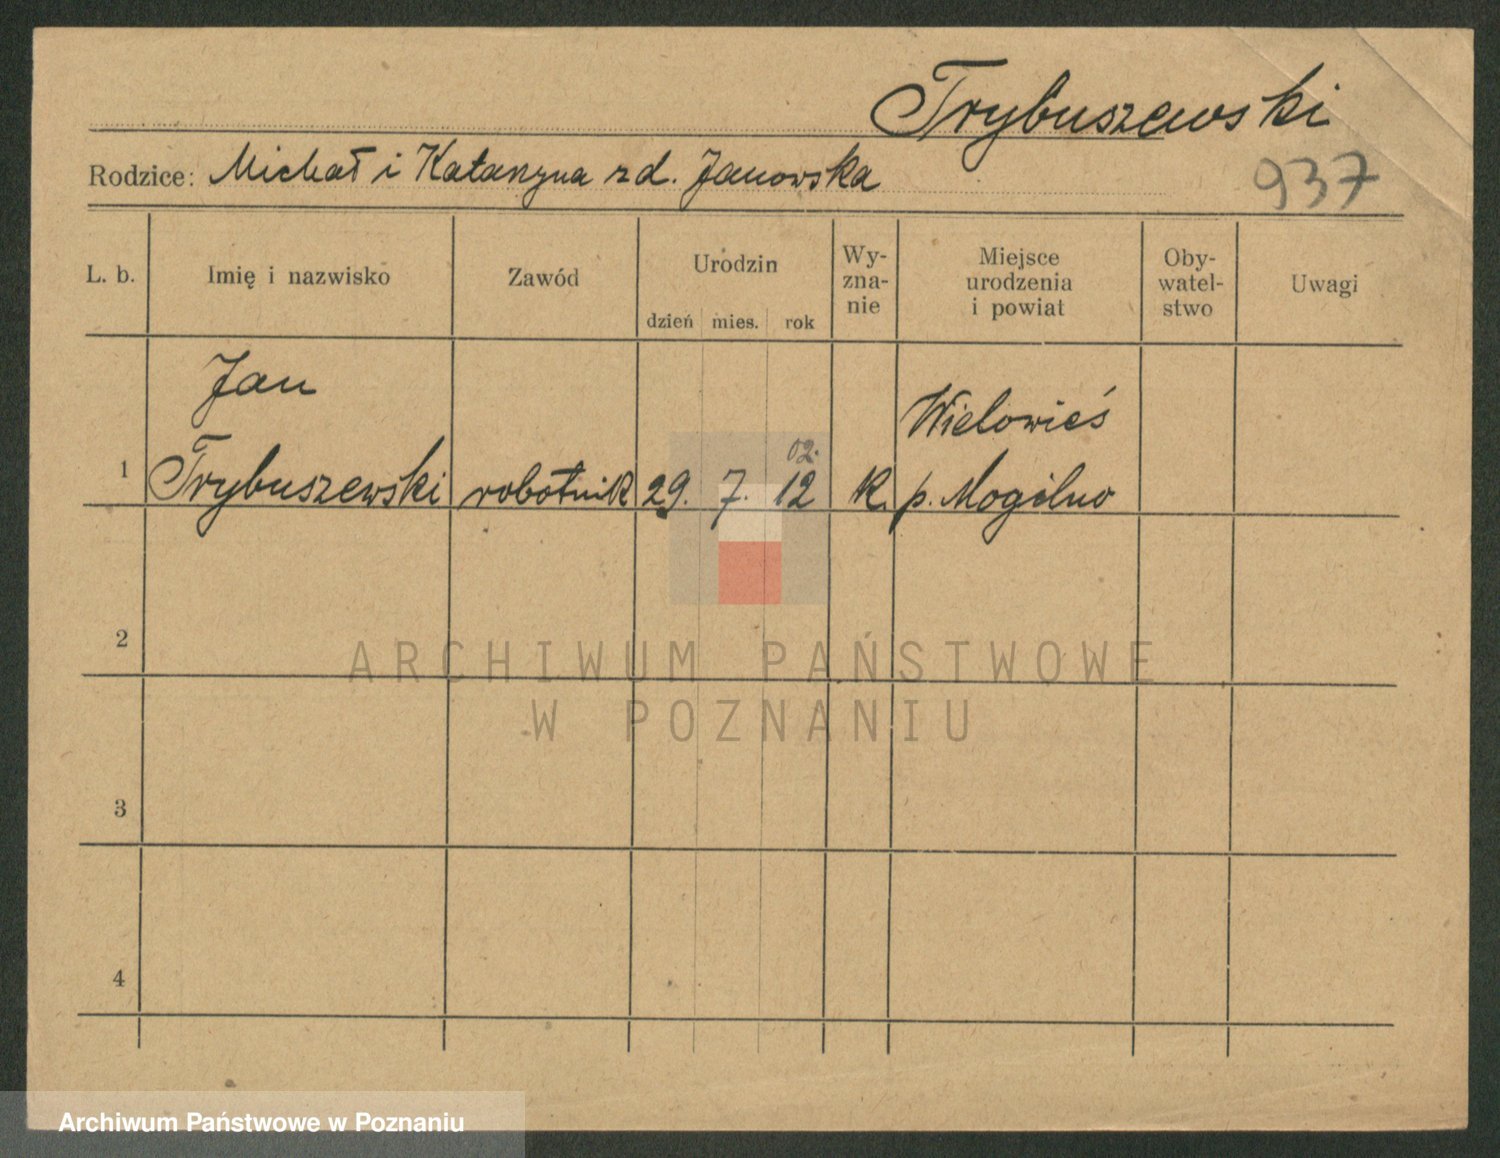 Trybuszewski
Rodzice: Michał i Katarzyna zd. Janowska
937
L. b.
Imię i nazwisko
Zawód
Urodzin
dzień mies. rok
Wy-
zna-
nie
Miejsce
urodzenia
i powiat
Oby-
watel-
stwo
Uwagi
Jan
Wielowieś
02.
1 Trybuszewski robotnik 29. 7. 12 k. p. Mogilno
2
3
4
ARCHIWUM PAŃSTWOWE
W POZNANIU
Archiwum Państwowe w Poznaniu